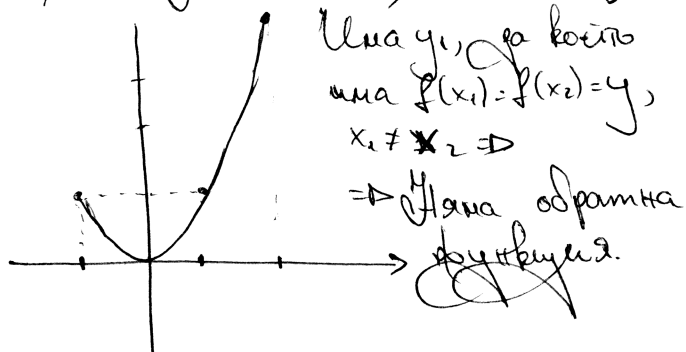 Има y₁, за който
има f(x₁) = f(x₂) = y,
x₁ ≠ x₂ ⇒
⇒ Няма обратна
функция.